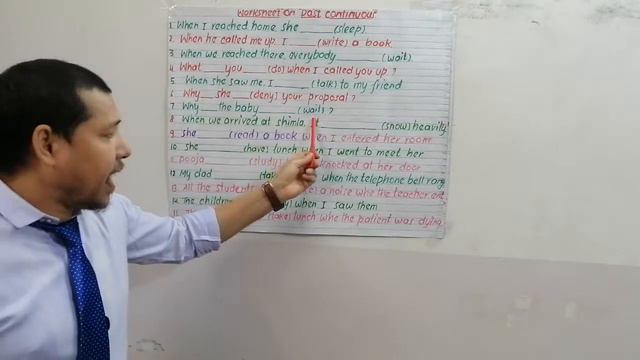 Worksheet on Past Continuous
1. When I reached home she _____ (sleep).
2. When he called me up. I _____ (write) a book.
3. When we reached there, everybody _____ (wait)
4. What ___ you ___ (do) when I called you up ?
5. When she saw me. I _____ (talk) to my friend
6. Why ___ she ___ (deny) your proposal ?
7. Why ___ the baby _____ (wait) ?
8. When we arrived at shimla. _____ (snow) heavily
9. she _____ (read) a book when I entered her room
10. she _____ (have) lunch when I went to meet her
11. pooja _____ (study) knocked at her door
12. My dad _____ when the telephone bell rang
13. All the students a noise whe the teacher ent
14. The children when I saw them
(take) lunch whe the patient was dying